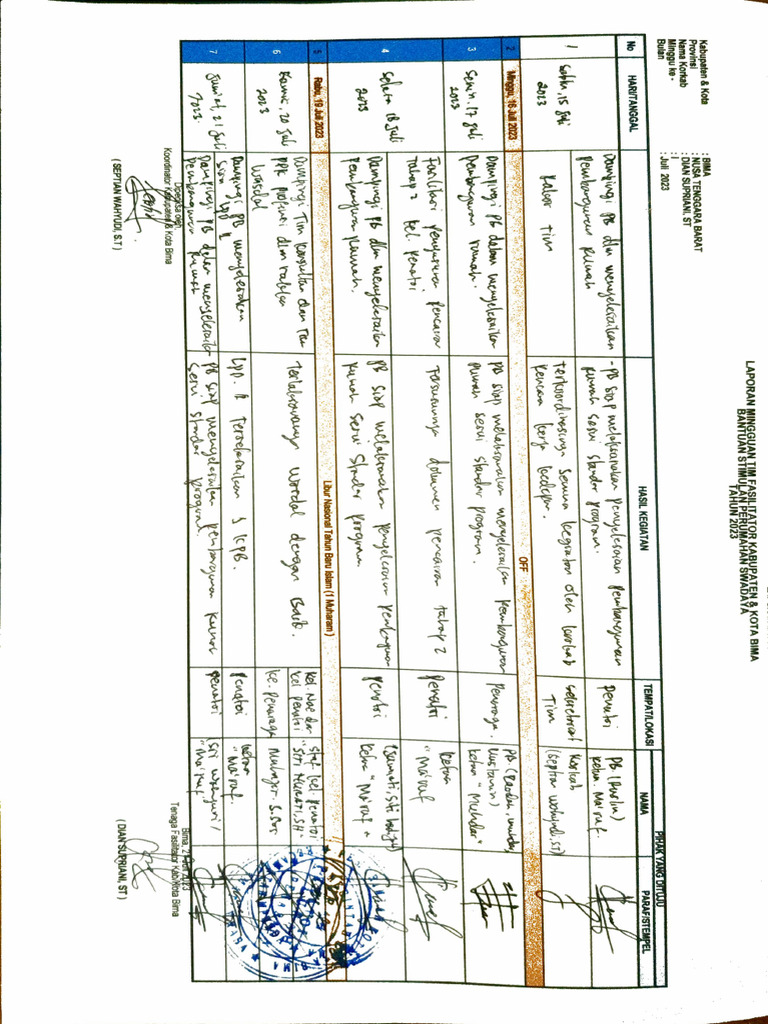 LAPORAN MINGGUAN TIM FASILITATOR KABUPATEN & KOTA BIMA
BANTUAN STIMULAN PERUMAHAN SWADAYA
TAHUN 2023
Kabupaten & Kota : BIMA
Provinsi : NUSA TENGGARA BARAT
Nama Korkab : DIAN SUPRIANI, ST
Minggu ke - : I
Bulan : Juli 2023
No HARI/TANGGAL HASIL KEGIATAN TEMPAT/LOKASI PIHAK YANG DITUJU
NAMA PARAF/STEMPEL
1 Sabtu, 15 Juli 2023
Dampingi PB dlm menyelesaikan Pembangunan Rumah
- PB siap melaksanakan penyelesaian pembangunan rumah sesui standar program.
Penatoi
PB
Ketua. Ma'ruf.
Rabor Tim
terkoordinasinya semua kegiatan oleh korkab
rencana kerja kedepan.
sekretariat Tim
Korkab (septian wahyudi, ST)
2 Minggu, 16 Juli 2023 OFF
3 Senin, 17 Juli 2023
Dampingi PB dalam menyelesaikan Pembangunan rumah.
PB siap melaksanakan menyelesaikan pembangunan rumah sesui standar program.
Penaraga.
PB
ketua " Muhidar"
4 Selasa 18 Juli 2023
Fasilitasi penyusunan pencairan tahap 2 kel. penatoi
Tersusunnya dokumen pencairan tahap 2
Penatoi
ketua " ma'ruf
Dampingi PB dlm menyelesaikan Pembangunan Rumah.
PB siap melaksanakan penyelesaian pembangunan rumah sesui standar program.
Penatoi
ketua " Ma'ruf "
5 Rabu, 19 Juli 2023 Libur Nasional Tahun Baru Islam (1 Muharam)
6 Kamis, 20 Juli 2023
Dampingi Tim Konsultan dan Tim PPK Provinsi dlm rangka Wasdal
Terlaksananya Wasdal dengan Baik.
kel. Nae dan kel penatoi
staf kel. Penatoi
" SITI NURATI, SH.
ke. Penaraga
7 Jum'at, 21 Juli 2023.
Dampingi PB menyelesaikan
Lpp. II Terselesaikan 5 KPB.
Penatoi
ketua " Ma'ruf.
Dampingi PB dalam menyelesaikan pembangunan rumah
PB siap menyelesaikan pembangunan rumah sesui standar program.
penatoi
" ma'ruf.
Diperiksa oleh,
Koordinator Kabupaten & Kota Bima
( SEPTIAN WAHYUDI, S.T )
Bima, 2
Tenaga Fasilitator Kab/Kota Bima
( DIAN SUPRIANI, ST )